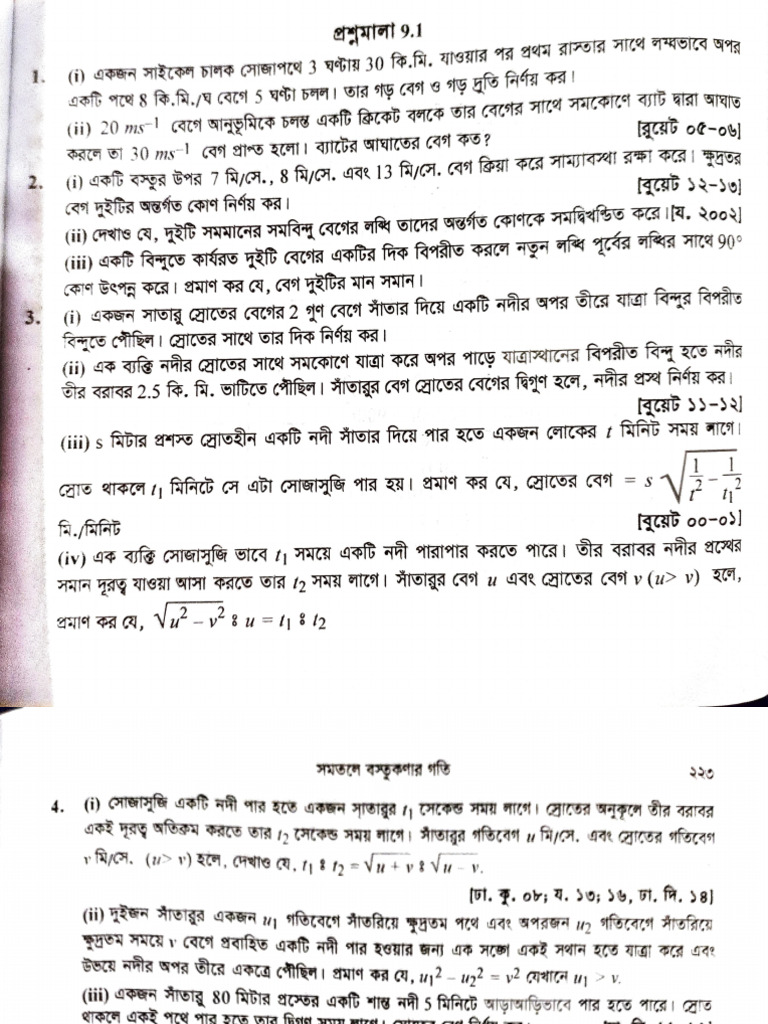 প্রশ্নমালা 9.1
1. (i) একজন সাইকেল চালক সোজাপথে 3 ঘণ্টায় 30 কি.মি. যাওয়ার পর প্রথম রাস্তার সাথে লম্বভাবে অপর
একটি পথে 8 কি.মি./ঘ বেগে 5 ঘণ্টা চলল। তার গড় বেগ ও গড় দ্রুতি নির্ণয় কর।
(ii) 20 ms⁻¹ বেগে আনুভূমিকে চলন্ত একটি ক্রিকেট বলকে তার বেগের সাথে সমকোণে ব্যাট দ্বারা আঘাত
করলে তা 30 ms⁻¹ বেগ প্রাপ্ত হলো। ব্যাটের আঘাতের বেগ কত? [বুয়েট ০৫-০৬]
2. (i) একটি বস্তুর উপর 7 মি/সে., 8 মি/সে. এবং 13 মি/সে. বেগ ক্রিয়া করে সাম্যাবস্থা রক্ষা করে। ক্ষুদ্রতর
বেগ দুইটির অন্তর্গত কোণ নির্ণয় কর। [বুয়েট ১২-১৩]
(ii) দেখাও যে, দুইটি সমমানের সমবিন্দু বেগের লব্ধি তাদের অন্তর্গত কোণকে সমদ্বিখন্ডিত করে।[য. ২০০২]
(iii) একটি বিন্দুতে কার্যরত দুইটি বেগের একটির দিক বিপরীত করলে নতুন লব্ধি পূর্বের লব্ধির সাথে 90°
কোণ উৎপন্ন করে। প্রমাণ কর যে, বেগ দুইটির মান সমান।
3. (i) একজন সাতারু স্রোতের বেগের 2 গুণ বেগে সাঁতার দিয়ে একটি নদীর অপর তীরে যাত্রা বিন্দুর বিপরীত
বিন্দুতে পৌঁছিল। স্রোতের সাথে তার দিক নির্ণয় কর।
(ii) এক ব্যক্তি নদীর স্রোতের সাথে সমকোণে যাত্রা করে অপর পাড়ে যাত্রাস্থানের বিপরীত বিন্দু হতে নদীর
তীর বরাবর 2.5 কি. মি. ভাটিতে পৌঁছিল। সাঁতারুর বেগ স্রোতের বেগের দ্বিগুণ হলে, নদীর প্রস্থ নির্ণয় কর।
[বুয়েট ১১-১২]
(iii) s মিটার প্রশস্ত স্রোতহীন একটি নদী সাঁতার দিয়ে পার হতে একজন লোকের t মিনিট সময় লাগে।
স্রোত থাকলে t₁ মিনিটে সে এটা সোজাসুজি পার হয়। প্রমাণ কর যে, স্রোতের বেগ = s √(1/t² − 1/t₁²)
মি./মিনিট [বুয়েট ০০-০১]
(iv) এক ব্যক্তি সোজাসুজি ভাবে t₁ সময়ে একটি নদী পারাপার করতে পারে। তীর বরাবর নদীর প্রস্থের
সমান দূরত্ব যাওয়া আসা করতে তার t₂ সময় লাগে। সাঁতারুর বেগ u এবং স্রোতের বেগ v (u> v) হলে,
প্রমাণ কর যে, √(u² − v²) ঃ u = t₁ ঃ t₂
সমতলে বস্তুকণার গতি ২২৩
4. (i) সোজাসুজি একটি নদী পার হতে একজন সাতারুর t₁ সেকেন্ড সময় লাগে। স্রোতের অনুকূলে তীর বরাবর
একই দূরত্ব অতিক্রম করতে তার t₂ সেকেন্ড সময় লাগে। সাঁতারুর গতিবেগ u মি/সে. এবং স্রোতের গতিবেগ
v মি/সে. (u> v) হলে, দেখাও যে, t₁ ঃ t₂ = √(u + v) ঃ √(u − v).
[ঢা. কু. ০৮; য. ১৩; ১৬, ঢা. দি. ১৪]
(ii) দুইজন সাঁতারুর একজন u₁ গতিবেগে সাঁতরিয়ে ক্ষুদ্রতম পথে এবং অপরজন u₂ গতিবেগে সাঁতরিয়ে
ক্ষুদ্রতম সময়ে v বেগে প্রবাহিত একটি নদী পার হওয়ার জন্য এক সঙ্গে একই স্থান হতে যাত্রা করে এবং
উভয়ে নদীর অপর তীরে একত্রে পৌঁছিল। প্রমাণ কর যে, u₁² − u₂² = v² যেখানে u₁ > v.
(iii) একজন সাঁতারু 80 মিটার প্রস্থের একটি শান্ত নদী 5 মিনিটে আড়াআড়িভাবে পার হতে পারে। স্রোত
থাকলে একই পথে পার হতে তার দ্বিগুণ সময় লাগে।